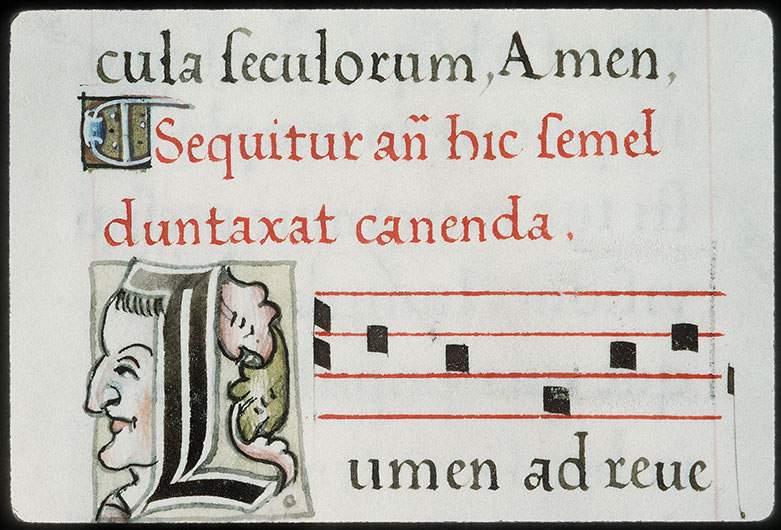 cula seculorum, Amen,
Sequitur añ hic semel
duntaxat canenda.
Lumen ad reue